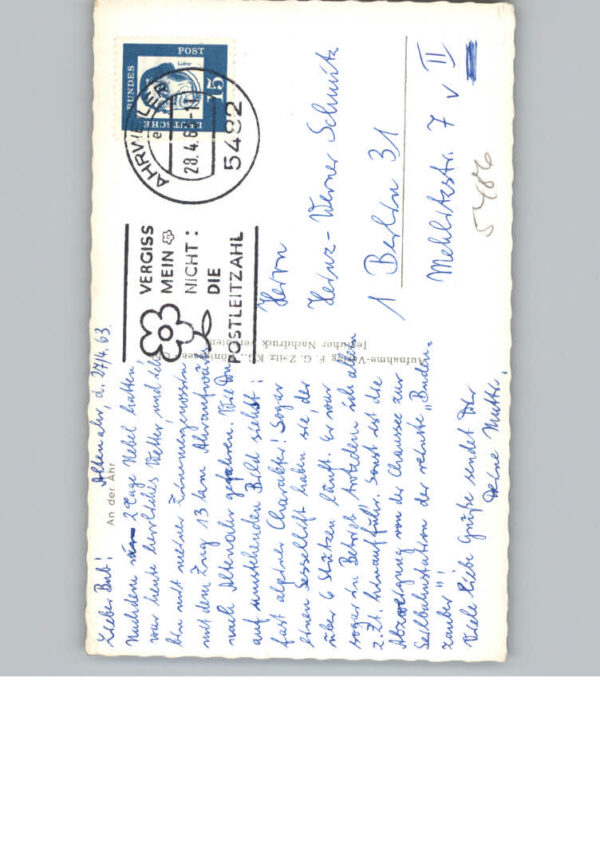 Altenahr, d. 27/4.63.
An der Ahr
Lieber Bub!
Nachdem 2 Tage Nebel hatten,
war heute herrliches Wetter, und ich
bin mit meiner Zimmergenossin
mit dem Zug 13 km Ahraufwärts
nach Altenahr gefahren. Wie Du
auf umstehenden Bild siehst:
fast alpiner Charakter! Sogar
einen Sessellift haben sie, der
über 6 Stützen läuft. Er war
sogar in Betrieb, trotzdem ich allein
z. Zt. hinauffuhr. Sonst ist die
Abzweigung von der Chaussee zur
Seilbahnstation der reinste „Buden-
zauber"!
Viele liebe Grüße sendet Dir
Deine Mutti.
Aufnahme-Verlag F. G. Zeitz KG.,
Jeglicher Nachdruck verboten
DEUTSCHE
BUNDES
POST
Luther
15
AHRWEILER
28.4.63-11
5482
VERGISS
MEIN
NICHT:
DIE
POSTLEITZAHL
Herrn
Heinz-Werner Schmitz
1 Berlin 31
Mehlitzstr. 7 v II
5486